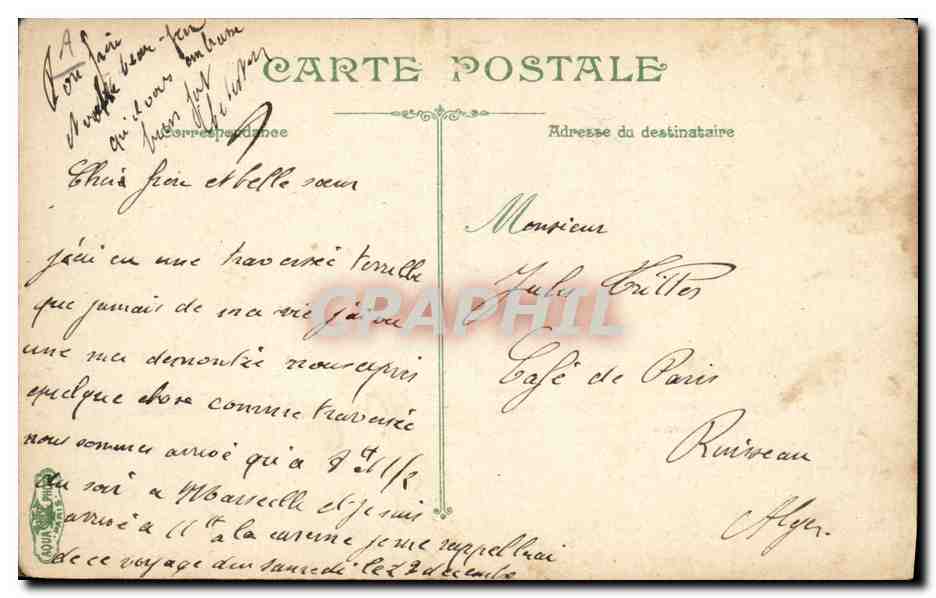 CARTE POSTALE
Correspondance
Adresse du destinataire
frère
votre beau-frère
qui vous embrasse
bien fort
Cher frère et belle sœur
j'ai eu une traversée terrible
que jamais de ma vie j'ai vu
une mer démontée nous
quelque chose comme traversée
nous sommes arrivé qu'à 8 et 1/2
du soir a Marseille et je suis
arrivé a 11 a la caserne je me rappellerai
de ce voyage du samedi le décembre
Monsieur
Jules
Café de Paris
Ruisseau
Alger
CPAPHIL
AQUA PHOT
PARIS